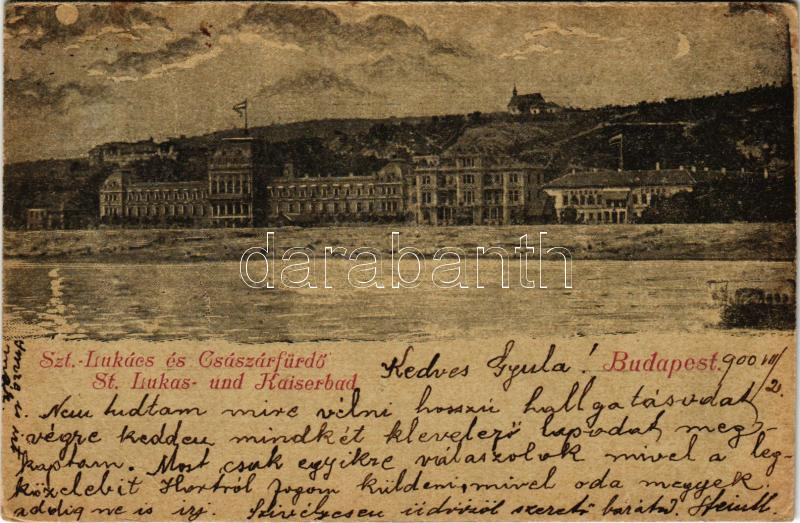 darabanth
Szt.-Lukács és Császárfürdő
St. Lukas- und Kaiserbad
Budapest.
Kedves Gyula! 900 VII/2.
Nem tudtam mire vélni hosszú hallgatásodat
végre kedden mindkét klevelező lapodat meg-
kaptam. Most csak egyikre válaszolok mivel a leg-
közelebit Hortról fogom küldeni, mivel oda megyek.
addig ne is irj. Szivélyesen üdvözöl szerető barátod